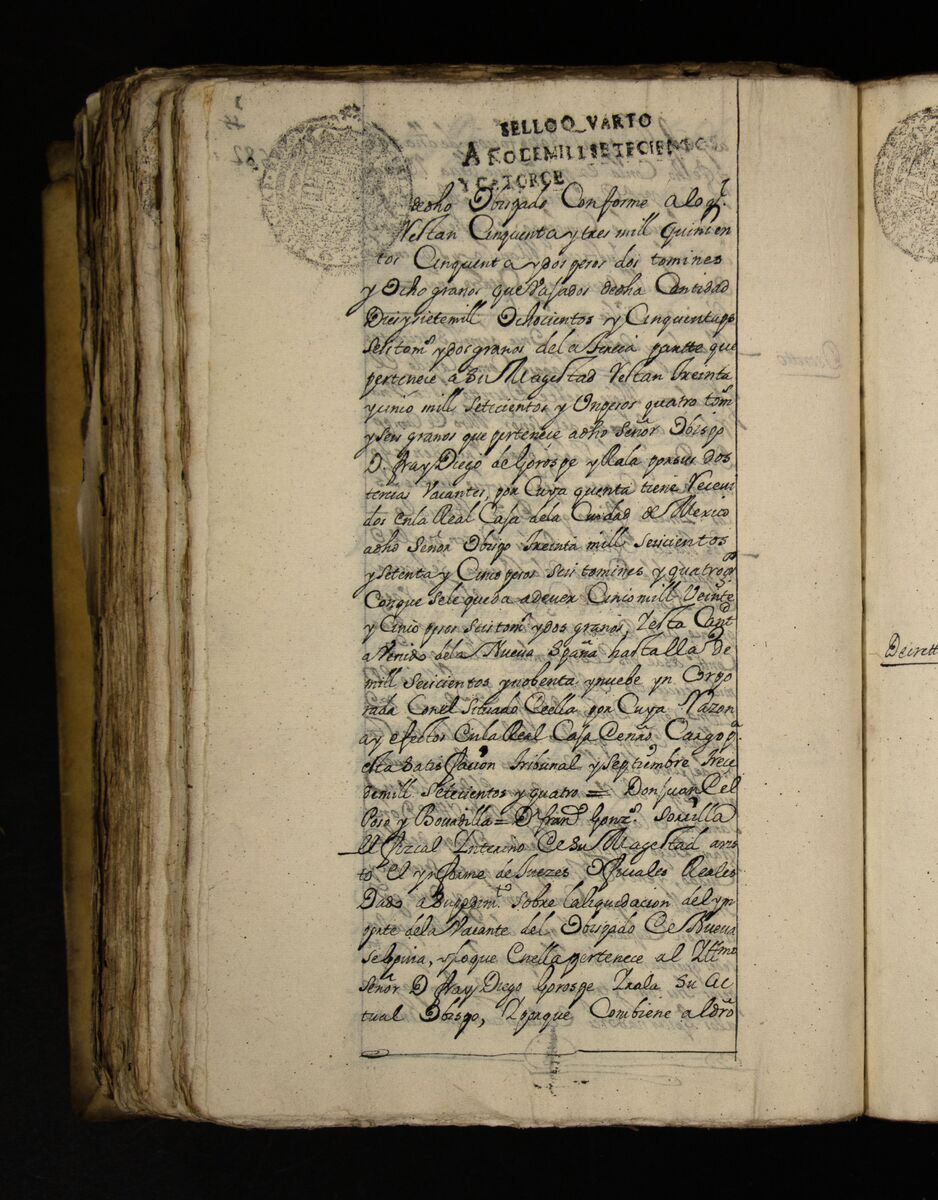 SELLO QVARTO
AÑO DE MIL SETECIENTOS
Y CATORCE
dedho Obispado Conforme a lo ql.
Restan Cinquenta y tres mill quinien
tos Cinquenta y dos pesos dos tomines
y Ocho granos que Vajados dedha Cantidad
Dies y siete mill Ochocientos y Cinquenta ps
seis toms y dos granos de la tercia partte que
pertenece a Su Magestad Restan treinta
y cinco mill setecientos y Un pesos quatro toms
y seis granos que pertenece adho Señor Obispo
D. fray Diego de Gorospe y Rala por sus dos
tercias Vacantes, por Cuya quenta tiene Receui
dos en la Real Caja de la Ciudad de Mexico
adho Señor Obispo treinta mill seiscientos
y setenta y Cinco pesos seis tomines y quatro gos
Con que se le queda a deuer Cinco mill Veinte
y Cinco pesos seis toms y dos granos, Y esta Cantd
a Venido de la Nueua España hasta la de
mill seiscientos y nobenta y nuebe yn Corpo
rada Con el Situado de ella por Cuya Razon
ay efectos en la Real Caja de mi Cargo pa
esta satisfacion tribunal y septiembre trece
de mill Setecientos y quatro = Don Juan del
Poso y Bouadilla = Dn franco Gonzs.
El fizcal Ynterino de su Magestad auis
to el ynforme de Juezes Oficiales Reales
Dado a Su pedimto sobre la liquidacion del ym
porte de la Vacante del Obispado de Nueua
Segovia, y lo que en ella pertenece al Yllmo
Señor D fray Diego Gorospe Yrala su ac
tual Obispo, Y porque Combiene al dro